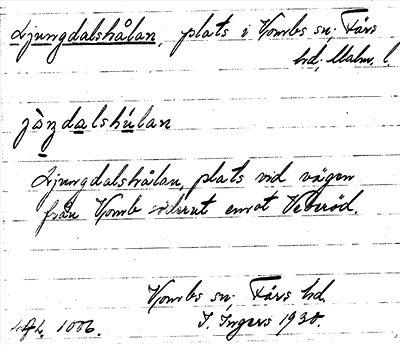 Ljungdalshålan, plats i Vombs sn; Färs
hd, Malm. l.
jòŋdalshúlan
Ljungdalshålan, plats vid vägen
från Vomb söderut emot Veberöd.
Vombs sn; Färs hd.
1006. I. Ingers 1930.